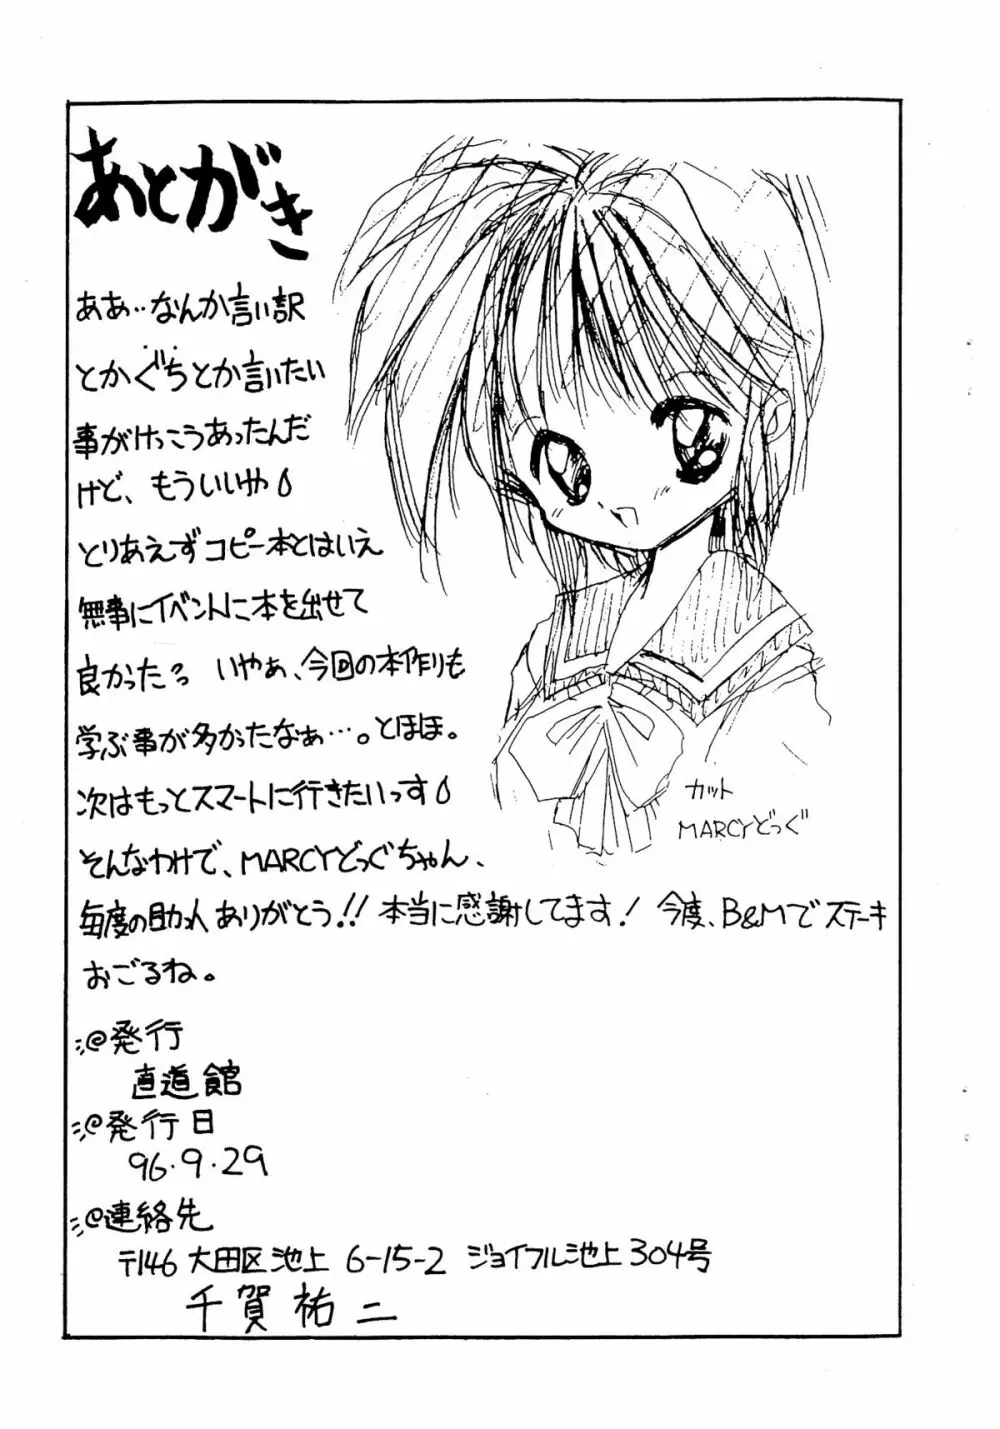 あとがき
ああ…なんか言い訳
とかぐちとか言いたい
事がけっこうあったんだ
けど、もういいや
とりあえずコピー本とはいえ
無事にイベントに本を出せて
良かった〜 いやぁ、今回の本作りも
学ぶ事が多かったなぁ…。とほほ。
次はもっとスマートに行きたいっす
そんなわけで、MARCYどっぐちゃん、
毎度の助っ人ありがとう!! 本当に感謝してます! 今度、B&Mでステーキ
おごるね。
カット
MARCYどっぐ
@発行
直道館
@発行日
96・9・29
@連絡先
〒146 大田区池上 6-15-2 ジョイフル池上304号
千賀祐二